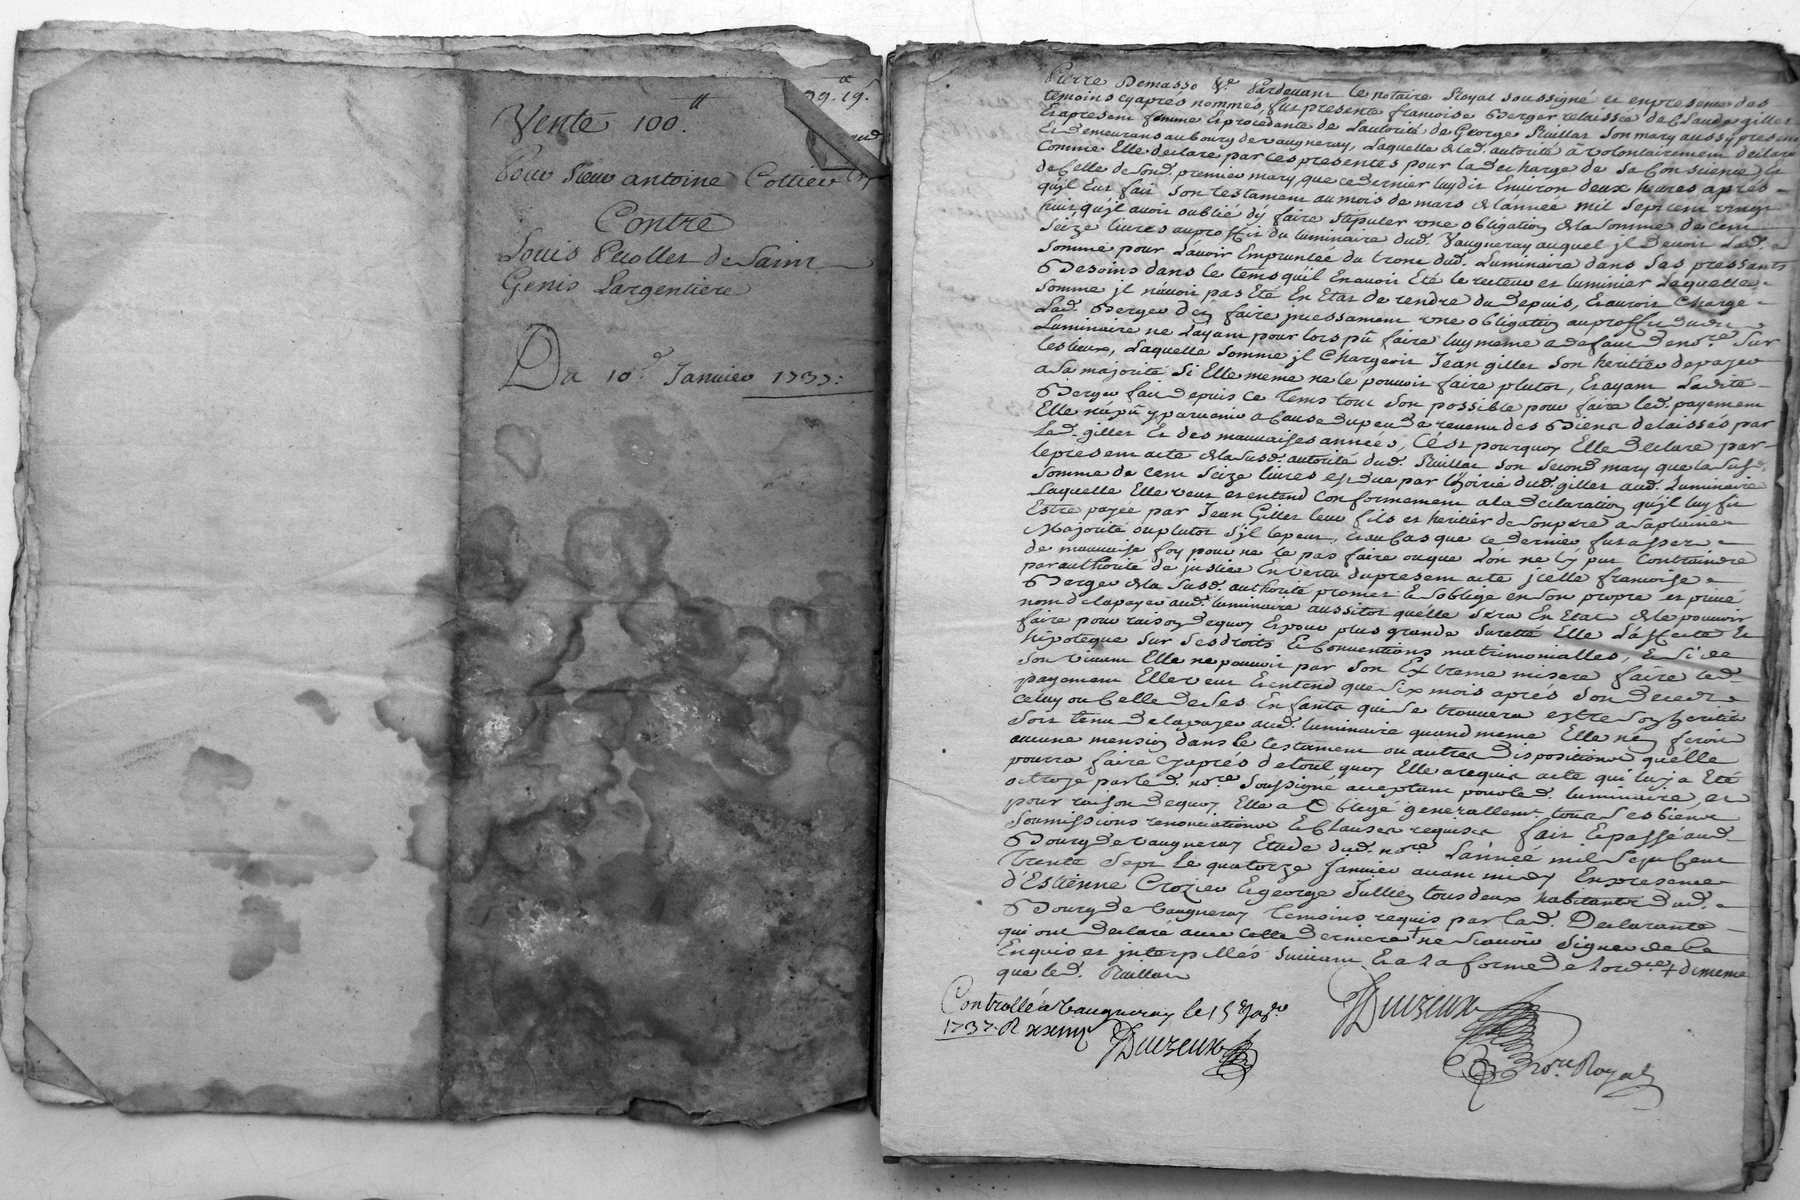 Vente 100.ᵗᵗ
Pour Sieur antoine Collier
Contre
Louis de Saint
Genis Largentiere
Du 10.ᵉ Janvier 1737:
99.19ˢ
Pierre Demasso &ᵃ. Pardevant le notaire Royal soussigné et enpresence des
temoins cyaprés nommés fut presente francoise Berger relaissée de Claude gillet
Et apresent femme Et procédante de Lautorité de George Ruillat Son mary aussy present
Et demeurans au bourg de vaugneray, Laquelle de lad. autorité a volontairement declaré
Comme Elle declare par ces presentes pour la decharge de sa Consience Et
de Celle de Sond. premier mary, que ce dernier luy dit Environ deux heures aprés
qu'jl Eut fait Son testament au mois de mars de l'année mil sept cent vingt
huit qu'jl avoit oublié d'y faire stipuler une obligation de la Somme de cent
Seize livres au proffit du luminaire dud. Vaugneray auquel jl devoit Lad.
Somme pour L'avoir Empruntée du tronc dud. Luminaire dans ses pressants
Besoins dans le tems qu'jl En avoit Eté le recteur et luminier Laquelle
Somme jl n'avoit pas Eté En Etat de rendre du depuis, Et avoit Chargé
Lad. Berger d'en faire jncessament une obligation au proffit dudit
Luminaire ne Layant pour lors pû faire luy meme a defaut de noʳᵉ Sur
les lieux, Laquelle Somme jl Chargeoit Jean gillet Son heritier de payer
a Sa majorité Si Elle meme ne le pouvoit faire plutot, Et ayant Ladite
Berger fait depuis ce tems tout Son possible pour faire led. payement
Elle n'a pû y parvenir a Cause du peu de revenu des Biens delaissés par
Led. gillet Et des mauvaises années, C'est pourquoy Elle declare par
le present acte de la Susd. autorité dud. Ruillat Son Second mary que la Susd.
Somme de cent Seize livres est due par L'hoirie dud. gillet aud. Luminaire
Laquelle Elle veut et entend Conformement a la declaration qu'jl luy fit
Estre payée par Jean Gillet leur fils et heritier de Son pere a Sa pleine
Majorité ou plutot S'jl le peut, Et au Cas que ce dernier fut assez
de mauvaise foy pour ne le pas faire ou que L'on ne l'y put Contraindre
par authorité de justice En vertu du present acte jcelle francoise
Berger de la Susd. authorité promet Et S'oblige en Son propre et privé
nom de la payer aud. luminaire aussitot qu'elle Sera En Etat de le pouvoir
faire pour raison dequoy Et pour plus grande Sureté Elle L'affecte Et
hipoteque Sur Ses droits Et Conventions matrimonialles, Et Si de
Son vivant Elle ne pouvoit par Son Extreme misere faire led.
payement Elle veut Et entend que Six mois aprés Son decedz
celuy ou Celle de Ses Enfants qui Se trouvera estre Son heritier
Soit tenu de la payer aud. luminaire quand meme Elle n'en feroit
aucune mension dans le testament ou autres dispositions qu'elle
pourra faire cyaprés de tout quoy Elle a requis acte qui luy a Eté
octroyé par led. noʳᵉ Soussigné acceptant pour led. luminaire, et
pour raison dequoy Elle a Obligé generallemᵗ. tous Ses biens
Soumissions renonciations Et Clauses requises fait Et passé aud.
Bourg de Vaugneray Etude dud. noʳᵉ L'année mil Sept Cent
Trente Sept Le quatorze Janvier avant midy En presence
d'Estienne Crozier Et george Jullien tous deux habitants dud.
Bourg de Vaugneray temoins requis par lad. Declarante
qui ont declaré avec Cette derniere + ne Scavoir Signer de Ce
Enquis et jnterpellés Suivant Et a la forme de Lord.ᶜᵉ + de meme
que led. Ruillat
Controllé a Vaugneray le 15 Janᵛᵉʳ
1737. R
Duzeux
Duzeux
Noʳᵉ Royal